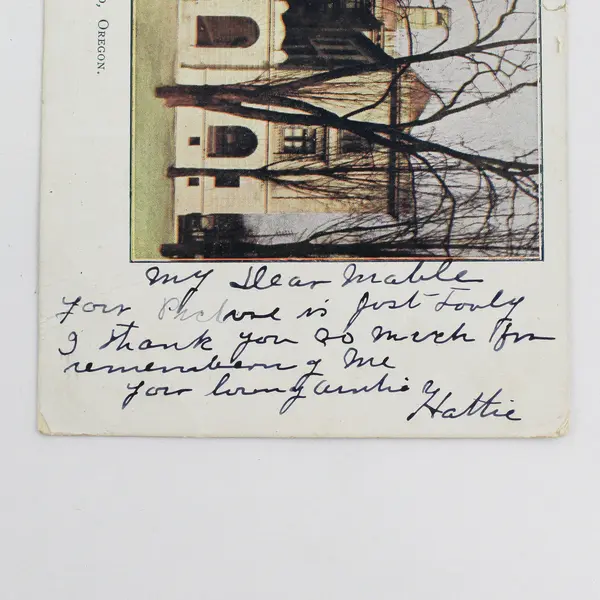 , OREGON.
My Dear Mable
your Picture is just Lovly
I thank you so much for
remembering me
your loving auntie
Hattie